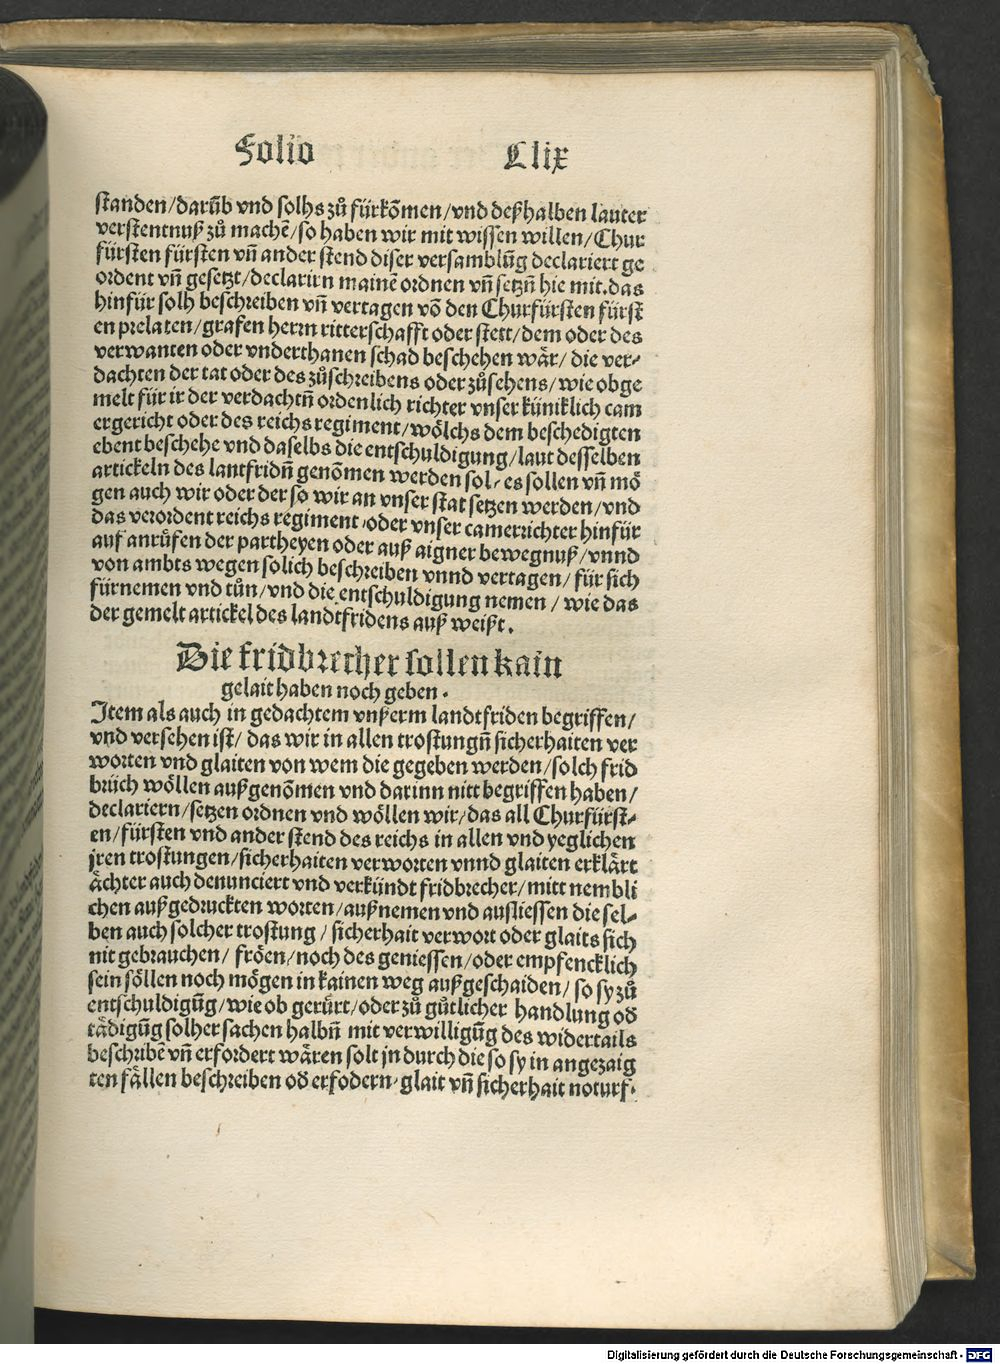 Folio Clix
standen/darũb vnd solhs zů fürkõmen/vnd deßhalben lauter
verstentnuß zů machẽ/so haben wir mit wissen willen/Chur
fürsten fürsten vñ ander stend diser versamblũg declariert ge
ordent vñ gesetzt/declarirn mainẽ ordnen vñ setzñ hie mit.das
hinfür solh beschreiben vñ vertagen võ den Churfürsten fürst
en prelaten/grafen herrn ritterschafft oder stett/dem oder des
verwanten oder vnderthanen schad beschehen wår/die ver⸗
dachten der tat oder des zůschreibens oder zůsehens/wie obge
melt für ir der verdachtñ ordenlich richter vnser küniklich cam
ergericht oder des reichs regiment/wölchs dem beschedigten
ebent beschehe vnd daselbs die entschuldigung/laut desselben
artickeln des lantfridñ genõmen werden sol/es sollen vñ mö
gen auch wir oder der so wir an vnser stat setzen werden/vnd
das verordent reichs regiment/oder vnser camerrichter hinfür
auf anrůfen der partheyen oder auß aigner bewegnuß/vnnd
von ambts wegen solich beschreiben vnnd vertagen/für sich
fürnemen vnd tůn/vnd die entschuldigung nemen/wie das
der gemelt artickel des landtfridens auß weißt.
Die fridbrecher sollen kain
gelait haben noch geben.
Item als auch in gedachtem vnßerm landtfriden begriffen/
vnd versehen ist/das wir in allen trostungñ sicherhaiten ver
worten vnd glaiten von wem die gegeben werden/solch frid
brüch wöllen außgenõmen vnd darinn nitt begriffen haben/
declariern/setzen ordnen vnd wöllen wir/das all Churfürst⸗
en/fürsten vnd ander stend des reichs in allen vnd yeglichen
jren trostungen/sicherhaiten verworten vnnd glaiten erklårt
åchter auch denunciert vnd verkündt fridbrecher/mitt nembli
chen außgedruckten worten/außnemen vnd ausliessen die sel⸗
ben auch solcher trostung/sicherhait verwort oder glaits sich
nit gebrauchen/fröen/noch des geniessen/oder empfencklich
sein söllen noch mögen in kainen weg außgeschaiden/so sy zů
entschuldigũg/wie ob gerürt/oder zů gůtlicher handlung oď
tådigũg solher sachen halbñ mit verwilligũg des widertails
beschribẽ vñ erfordert wåren solt jn durch die so sy in angezaig
ten fållen beschreiben oď erfodern/glait vñ sicherhait noturf⸗
Digitalisierung gefördert durch die Deutsche Forschungsgemeinschaft - DFG